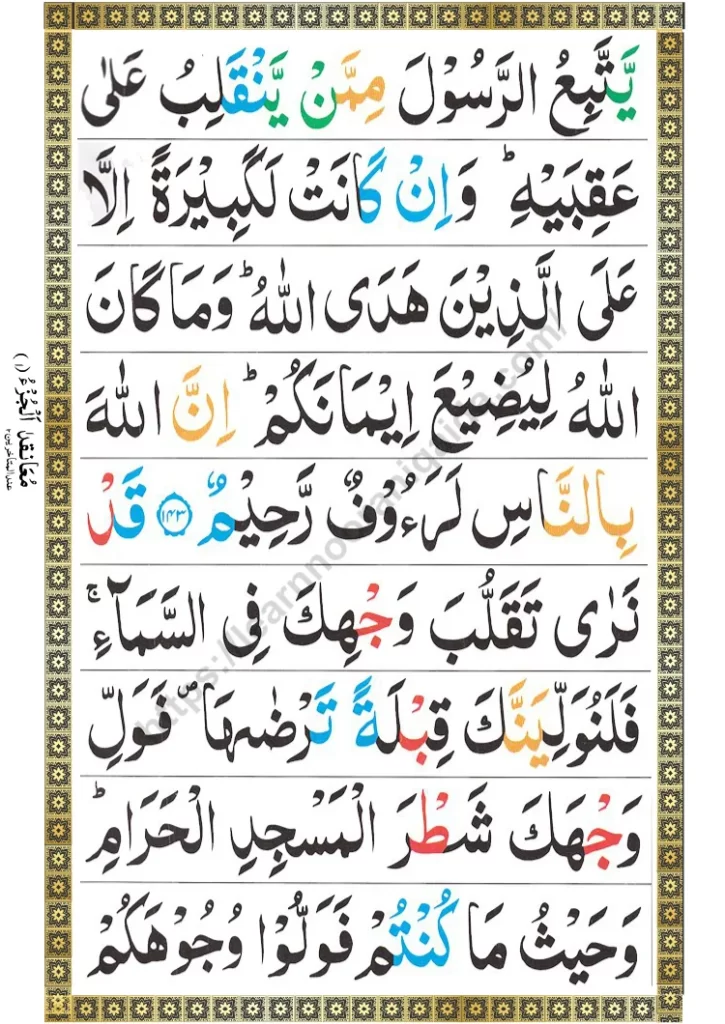 يَّتَّبِعُ الرَّسُوْلَ مِمَّنْ يَّنْقَلِبُ عَلٰى
عَقِبَيْهِ ؕ وَاِنْ كَانَتْ لَكَبِيْرَةً اِلَّا
عَلَى الَّذِيْنَ هَدَى اللّٰهُ ؕ وَمَا كَانَ
اللّٰهُ لِيُضِيْعَ اِيْمَانَكُمْ ؕ اِنَّ اللّٰهَ
بِالنَّاسِ لَرَءُوْفٌ رَّحِيْمٌ ۝۱۴۳ قَدْ
نَرٰى تَقَلُّبَ وَجْهِكَ فِى السَّمَآءِ ۚ
فَلَنُوَلِّيَنَّكَ قِبْلَةً تَرْضٰىهَا ۪ فَوَلِّ
وَجْهَكَ شَطْرَ الْمَسْجِدِ الْحَرَامِ ؕ
وَحَيْثُ مَا كُنْتُمْ فَوَلُّوْا وُجُوْهَكُمْ
https://learnnooraniqaida.com/